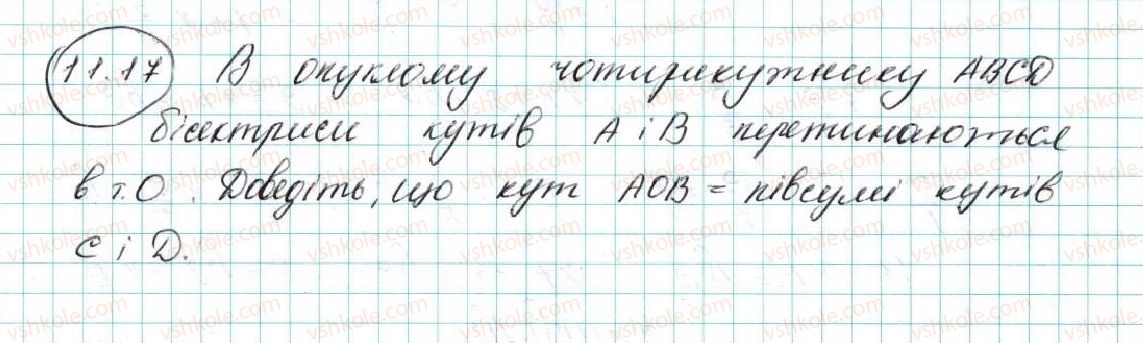 11.17 В опуклому чотирикутнику ABCD
бісектриси кутів A і B перетинаються
в т. O. Доведіть, що кут AOB = півсумі кутів
C і D.